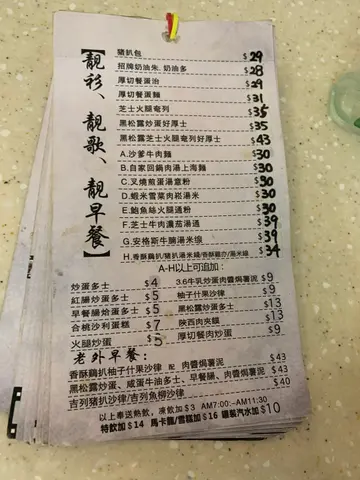 【靚彩、靚歌、靚早餐】
豬扒包 $29
招牌奶油朱.奶油多 $28
厚切餐蛋治 $29
厚切餐蛋麵 $31
芝士火腿奄列 $35
黑松露炒蛋好厚士 $35
黑松露芝士火腿奄列好厚士 $43
A.沙爹牛肉麵 $30
B.自家回鍋肉湯上海麵 $30
C.叉燒煎蛋湯意粉 $30
D.蝦米雪菜肉崧湯米 $30
E.鮑魚絲火腿通粉 $30
F.芝士牛肉濃茄湯通 $39
G.安格斯牛腩湯米線 $39
H.香酥鷄扒/豬扒湯米綫/香酥雞亦/湯米線 $34
A-H以上可追加:
炒蛋多士 $4
3.6牛乳炒蛋肉醬焗薯泥 $9
紅腸炒蛋多士 $5
柚子什果沙律 $9
早餐腸烚蛋多士 $5
黑松露炒蛋多士 $13
合桃沙利蛋糕 $7
陝西肉夾饃 $13
火腿炒蛋 $5
厚切餐肉炒蛋 $9
老外早餐:
香酥鷄扒柚子什果沙律 配 肉醬焗薯泥 $43
黑松露炒蛋、咸蛋牛油多士、早餐腸、肉醬焗薯泥 $43
吉列豬扒沙律/吉列魚柳沙律 $40
以上奉送熱飲,凍飲加$3 AM7:00-AM11:30
特飲加$14 馬卡龍/雪糕加$16 罐裝汽水加$10